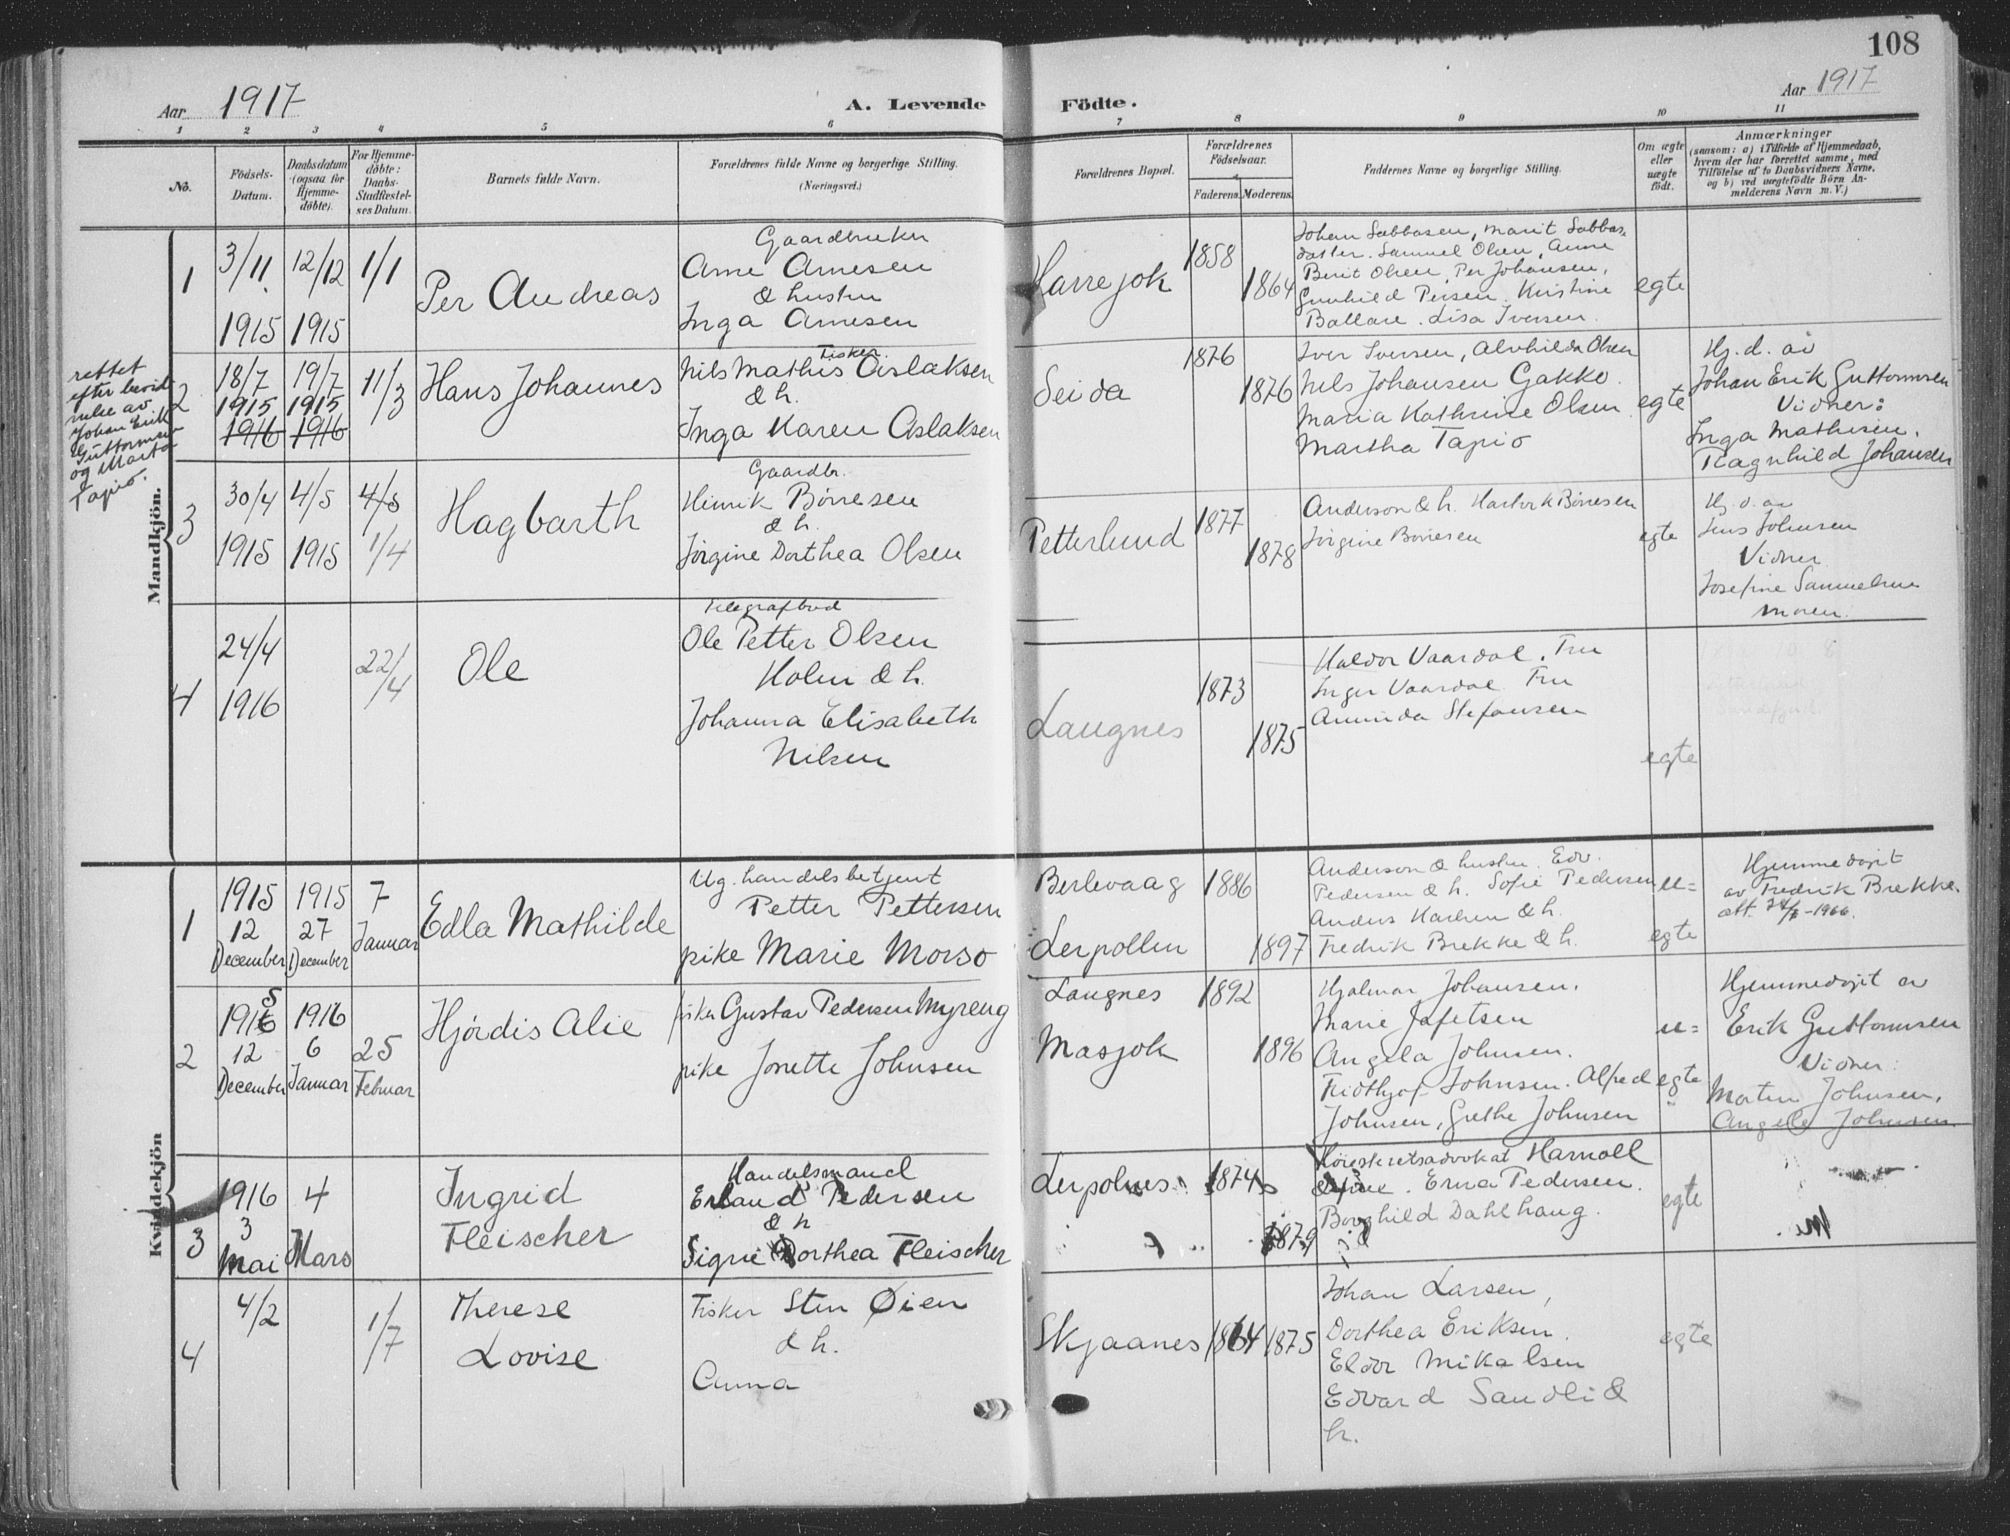 108
Aar 1917
A. Levende
Födte.
Aar 1917
1 2 3 4 5 6 7 8 9 10 11
No.
Födsels-
Datum.
Daabsdatum
(ogsaa for
Hjemme-
döbte).
For Hjemme-
döbte:
Daabs-
Stadfæstel-
ses Datum.
Barnets fulde Navn.
Forældrenes fulde Navne og borgerlige Stilling.
(Næringsvei.)
Forældrenes Bopæl.
Forældrenes
Födselsaar.
Faderens.
Moderens.
Faddernes Navne og borgerlige Stilling.
Om ægte
eller
uægte
födt.
Anmærkninger
(saasom: a) i Tilfælde af Hjemmedaab,
hvem der har forrettet samme, med
Tilföielse af to Daabsvidners Navne,
og b) ved uægtefödte Börn An-
melderens Navn m. V.)
Mandkjön.
1
3/11
1915
12/12
1915
1/1
Per Andreas
Gaardbruker
Arne Arnesen
& hustru
Inga Arnesen
Harrejok
1858
1864
Johan Sabbasen, Marit Sabbas-
datter. Samuel Olsen, Anne
Berit Olsen, Per Johansen,
Gunhild Persen. Kristine
Ballare. Lisa Iversen.
egte
rettet
efter bevid-
nelse av
Johan Erik
Guttormsen
og Marta
Tapio.
2
18/7
1915
1916
19/7
1915
1916
11/3
Hans Johannes
Fisker
Nils Mathis Aslaksen
& h.
Inga Karen Aslaksen
Seida
1876
1876
Iver Iversen, Alvhilda Olsen
Nils Johansen Gakko.
Maria Kathrine Olsen
Martha Tapio
egte
Hj. d. av
Johan Erik Guttormsen
Vidner:
Inga Mathisen.
Ragnhild Johansen
3
30/4
1915
4/5
1915
4/5
1/4
Hagbarth
Gaardbr.
Henrik Børresen
& h.
Jørgine Dorthea Olsen
Petterlund
1877
1878
Anderson & h. Hartvik Børresen
Jørgine Børresen
egte
Hj. d. av
Jens Johnsen
Vidner
Josefine Samuelsen
moren.
4
24/4
1916
22/4
Ole
Telegrafbud
Ole Petter Olsen
Holm & h.
Johanna Elisabeth
Nilsen
Langnes
1873
1875
Haldor Vaardal. Fru
Inger Vaardal. Fru
Aminda Stefansen
egte
Kvindekjön
1
1915
12
December
1915
27
December
7
Januar
Edla Mathilde
Ug. handelsbetjent
Petter Pettersen
pike Marie Morso
Berlevaag
Lerpollen
1886
1897
Anderson & hustru. Edv.
Pedersen & h. Sofie Pedersen
Anders Karlsen & h.
Fredrik Brekke & h.
u=
egte
Hjemmedøpt
av Fredrik Brekke.
att. 24/8-1966.
2
1915
12
December
1916
6
Januar
25
Februar
Hjørdis Alie
fisker Gustav Pedersen Myreng
pike Jonette Johnsen
Langnes
Masjok
1892
1896
Hjalmar Johansen.
Marie Jafetsen
Angela Johnsen.
Fridthjof Johnsen. Alfred
Johnsen, Grethe Johnsen
u=
egte
Hjemmedøpt av
Erik Guttormsen
Vidner:
Morten Johnsen,
Angela Johnsen
3
1916
3
Mai
4
Mars
Ingrid
Fleischer
Handelsmand
Erland Pedersen
& h
Signe Dorthea Fleischer
Lerpolnes
1874
1879
Høiesteretsadvokat Harnoll
Erna Pedersen.
Borghild Dahlhaug.
egte
4
4/2
1/7
Therese
Lovise
Fisker Sten Øien
& h.
Anna
Skjaanes
1864
1875
Johan Larsen,
Dorthea Eriksen.
Eldor Mikalsen
Edvard Sandli &
h.
egte